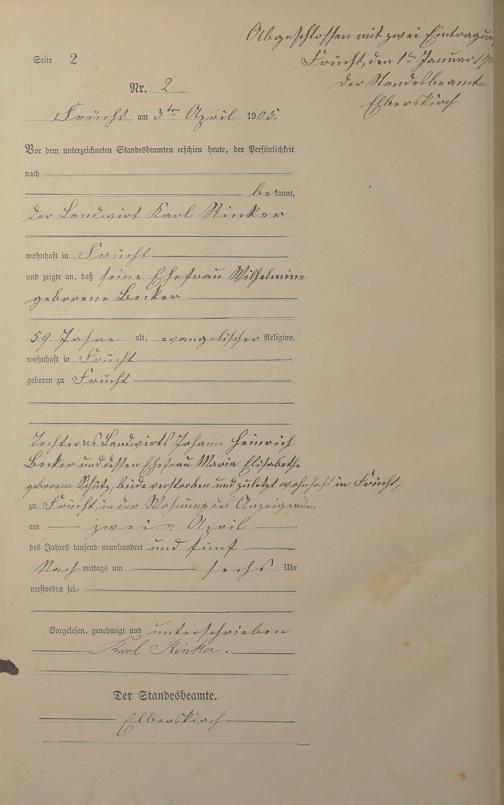 Abgeschlossen mit zwei Eintragun
Frücht, den 1ten Januar
Der Standesbeamte
Elberskirch
Seite 2
Nr. 2
Frücht, am 3ten April 1905.
Vor dem unterzeichneten Standesbeamten erschien heute, der Persönlichkeit
nach
bekannt,
der Landwirt Karl Rinker
wohnhaft in Frücht
und zeigte an, daß seine Ehefrau Wilhelmine
geborene Becker
59 Jahre alt, evangelischer Religion,
wohnhaft in Frücht
geboren zu Frücht
Tochter des Landwirts Johann Heinrich
Becker und dessen Ehefrau Maria Elisabethe
geborene Schütz, beide verstorben und zuletzt wohnhaft in Frücht,
zu Frücht, in der Wohnung des Anzeigenden
am zwei = April
des Jahres tausend neunhundert und fünf
Nach mittags um sechs Uhr
verstorben sei.
Vorgelesen, genehmigt und unterschrieben
Karl Rinker.
Der Standesbeamte.
Elberskirch